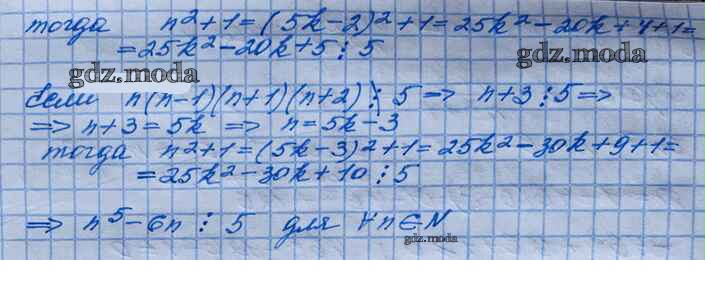 тогда n²+1=(5k-2)²+1=25k²-20k+4+1=
=25k²-20k+5⋮5
gdz.moda
gdz.moda
Если n(n-1)(n+1)(n+2)⋮̸5 ⇒ n+3⋮5 ⇒
⇒ n+3=5k ⇒ n=5k-3
тогда n²+1=(5k-3)²+1=25k²-30k+9+1=
=25k²-30k+10⋮5
⇒ n⁵-6n⋮5 для ∀n∈N
gdz.moda